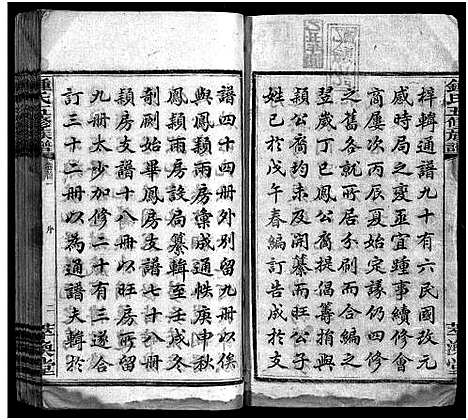 鍾氏五修族譜
萃渙堂
梓輯通譜九十有六民國
感時局之變亟宜踵事續修會
商屢次丙辰夏始定議仍
之舊各就所居分刷而合成之
翌歲丁巳鳳公裔提倡籌捐與
穎公裔約未及開纂而旺公子
姓已於戊午春編訂告成於支
譜四十四冊外別留九冊以俟
與鳳穎兩房彙成通帙庚申秋
鳳穎兩房設局纂輯至壬戌冬
剞劂始畢鳳
穎房支譜十八冊以旺房
九冊太少加修二十有三遂合
訂三十二冊以為通譜夫輯
鍾氏五修族譜
序
二
萃渙堂